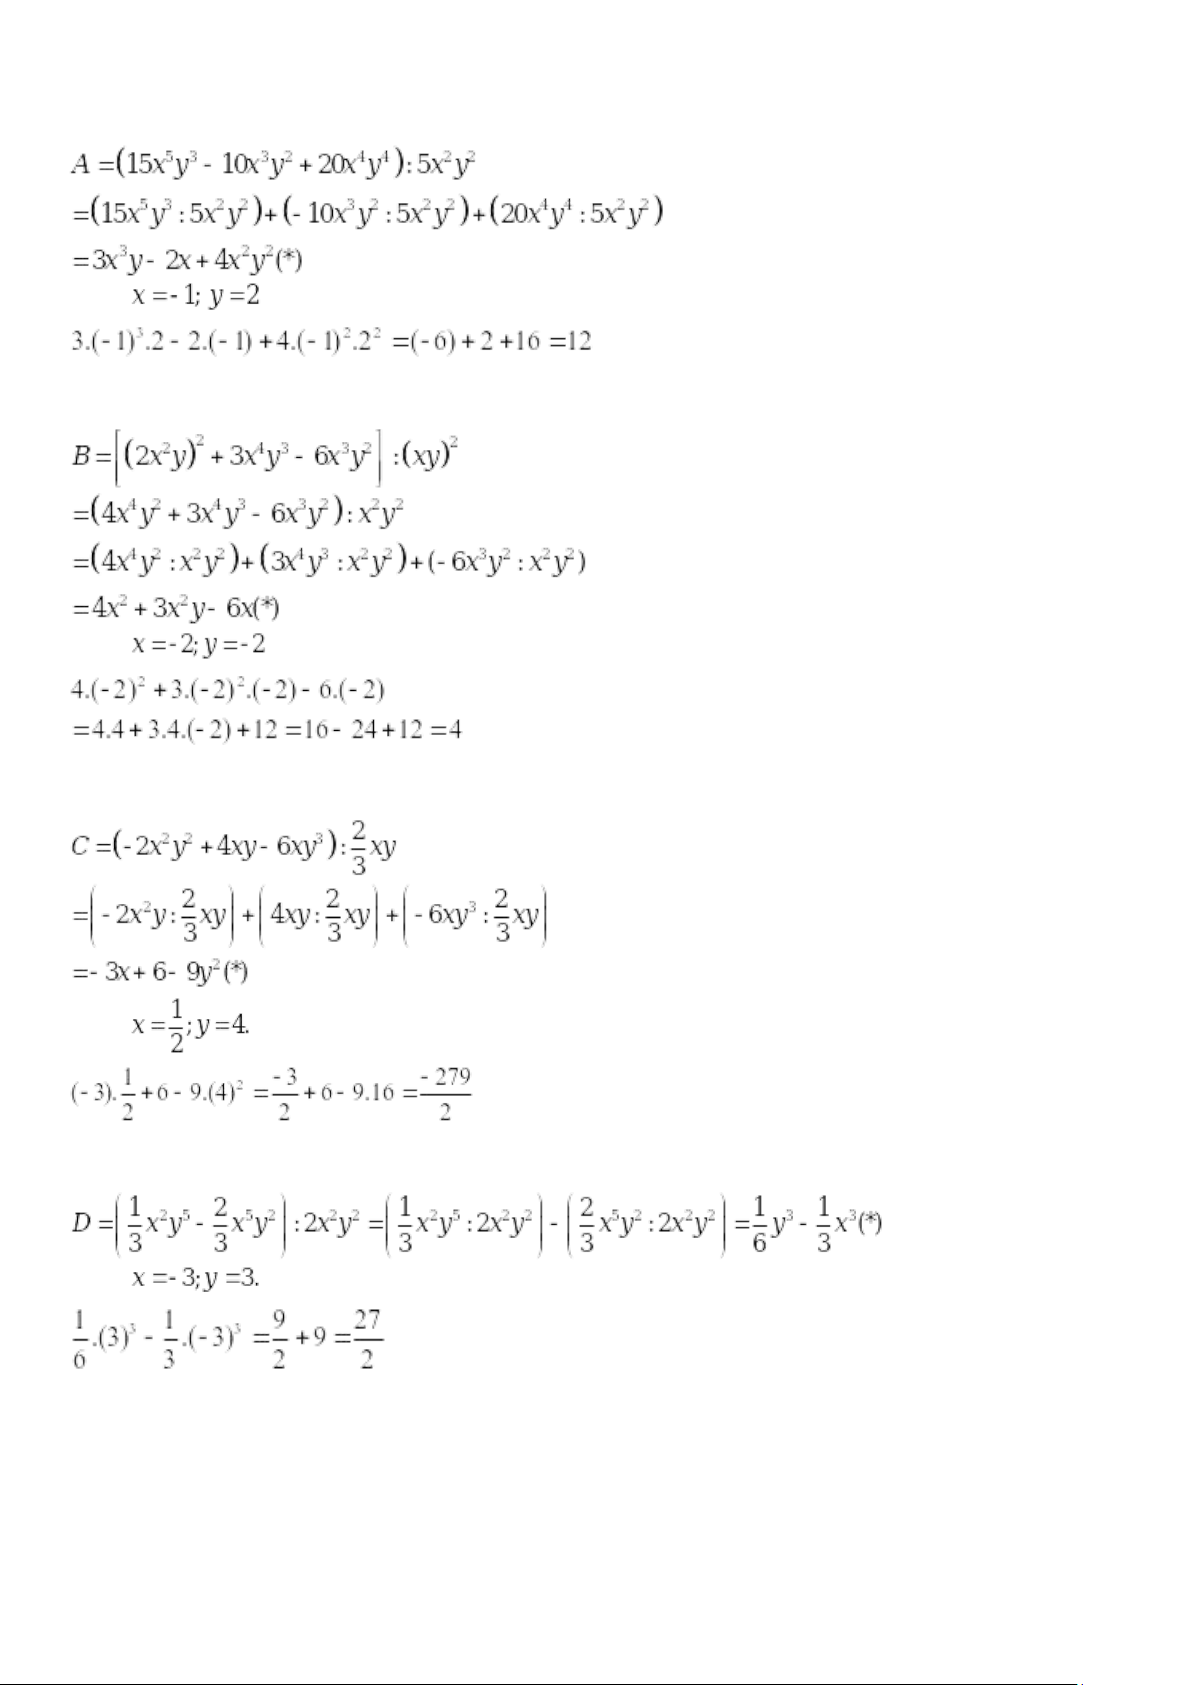 A = (15x⁵y³ - 10x³y² + 20x⁴y⁴) : 5x²y²
= (15x⁵y³ : 5x²y²) + (- 10x³y² : 5x²y²) + (20x⁴y⁴ : 5x²y²)
= 3x³y - 2x + 4x²y² (*)
x = - 1; y = 2
3.(- 1)³.2 - 2.(- 1) + 4.(- 1)².2² = (- 6) + 2 + 16 = 12
B = [(2x²y)² + 3x⁴y³ - 6x³y²] : (xy)²
= (4x⁴y² + 3x⁴y³ - 6x³y²) : x²y²
= (4x⁴y² : x²y²) + (3x⁴y³ : x²y²) + (- 6x³y² : x²y²)
= 4x² + 3x²y - 6x (*)
x = - 2; y = - 2
4.(- 2)² + 3.(- 2)².(- 2) - 6.(- 2)
= 4.4 + 3.4.(- 2) + 12 = 16 - 24 + 12 = 4
C = (- 2x²y² + 4xy - 6xy³) : 2/3 xy
= (- 2x²y : 2/3 xy) + (4xy : 2/3 xy) + (- 6xy³ : 2/3 xy)
= - 3x + 6 - 9y² (*)
x = 1/2; y = 4.
(- 3).1/2 + 6 - 9.(4)² = - 3/2 + 6 - 9.16 = - 279/2
D = (1/3 x²y⁵ - 2/3 x⁵y²) : 2x²y² = (1/3 x²y⁵ : 2x²y²) - (2/3 x⁵y² : 2x²y²) = 1/6 y³ - 1/3 x³ (*)
x = - 3; y = 3.
1/6.(3)³ - 1/3.(- 3)³ = 9/2 + 9 = 27/2